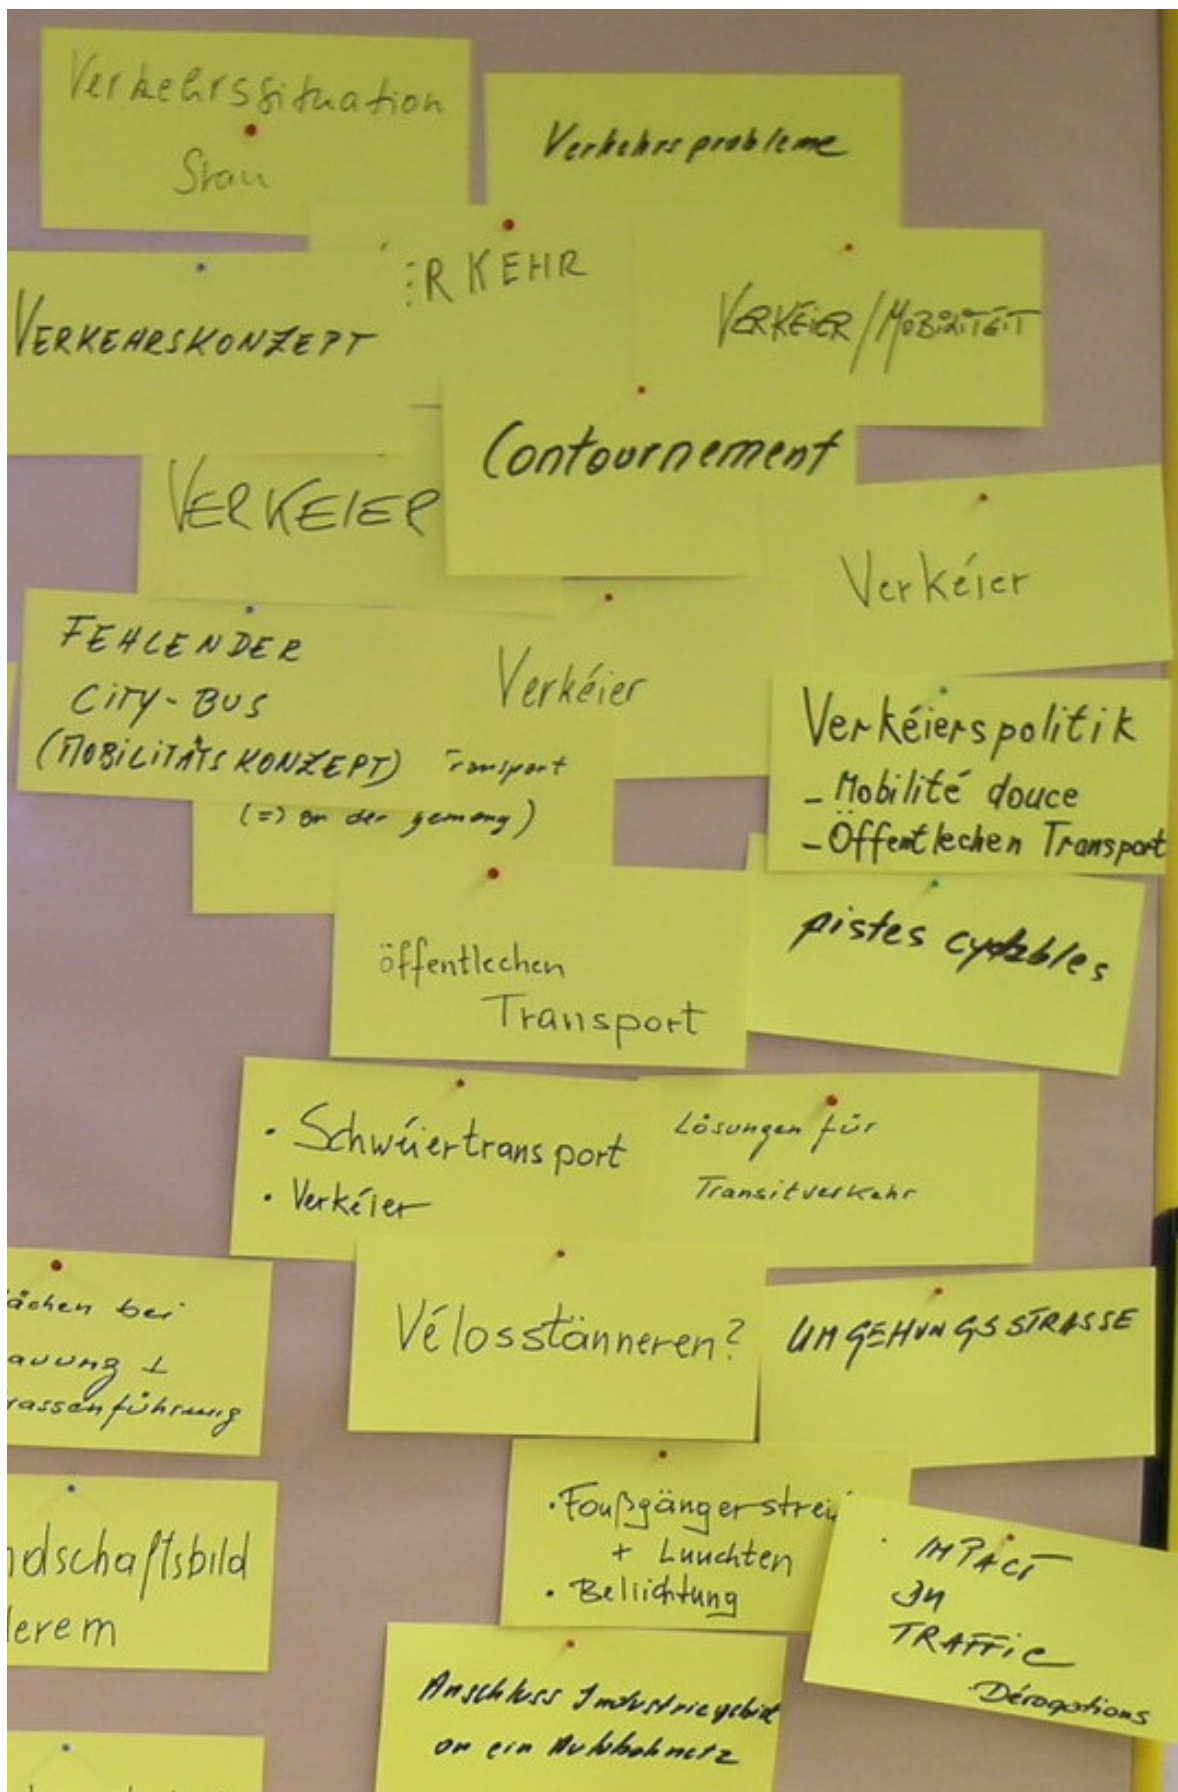 Verkehrssituation
Stau
Verkehrsprobleme
ERKEHR
VERKEHRSKONZEPT
VERKEIER/MOBILITEIT
Contournement
VERKEIER
Verkéier
FEHLENDER
CITY-BUS
(MOBILITÄTSKONZEPT)
Verkéier
Transport
(=> an der gemeng)
Verkéierspolitik
- Mobilité douce
- Öffentlechen Transport
pistes cyclables
öffentlechen
Transport
• Schwéiertransport
• Verkéier
Lösungen für
Transitverkehr
ächen bei
auung
rassenführung
Vélosstänneren?
UMGEHUNGSSTRASSE
ndschaftsbild
erem
• Foußgängerstrei
+ Luuchten
• Beliichtung
• IMPACT
IN
TRAFFIC
• Dérogations
Anschluss Industriegebiet
an ein Autobahnetz